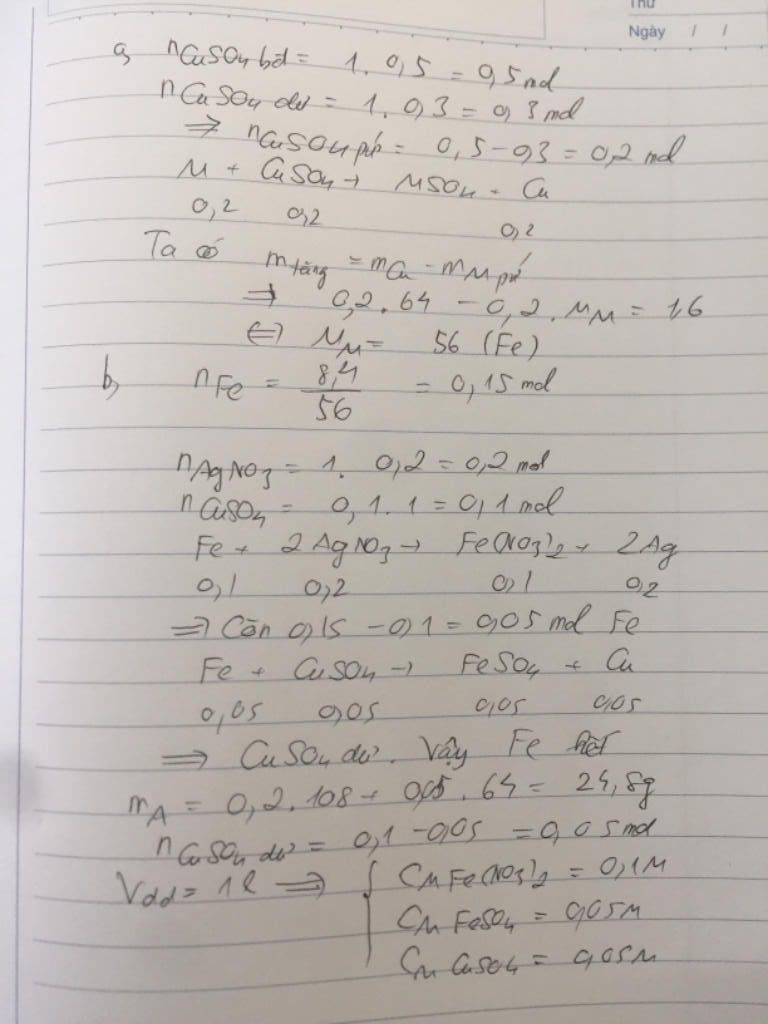 Thứ
Ngày / /
a, nCuSO4 bđ = 1. 0,5 = 0,5 mol
nCuSO4 dư = 1. 0,3 = 0,3 mol
⇒ nCuSO4 pứ = 0,5 - 0,3 = 0,2 mol
M + CuSO4 → MSO4 + Cu
0,2 0,2 0,2
Ta có mtăng = mCu - mM pứ
⇒ 0,2. 64 - 0,2. MM = 1,6
⇔ MM = 56 (Fe)
b, nFe = 8,4/56 = 0,15 mol
nAgNO3 = 1. 0,2 = 0,2 mol
nCuSO4 = 0,1. 1 = 0,1 mol
Fe + 2AgNO3 → Fe(NO3)2 + 2Ag
0,1 0,2 0,1 0,2
⇒ Còn 0,15 - 0,1 = 0,05 mol Fe
Fe + CuSO4 → FeSO4 + Cu
0,05 0,05 0,05 0,05
⇒ CuSO4 dư. Vậy Fe hết
mA = 0,2. 108 + 0,05. 64 = 24,8g
nCuSO4 dư = 0,1 - 0,05 = 0,05 mol
Vdd = 1l ⇒ { CM Fe(NO3)2 = 0,1M
CM FeSO4 = 0,05M
CM CuSO4 = 0,05M